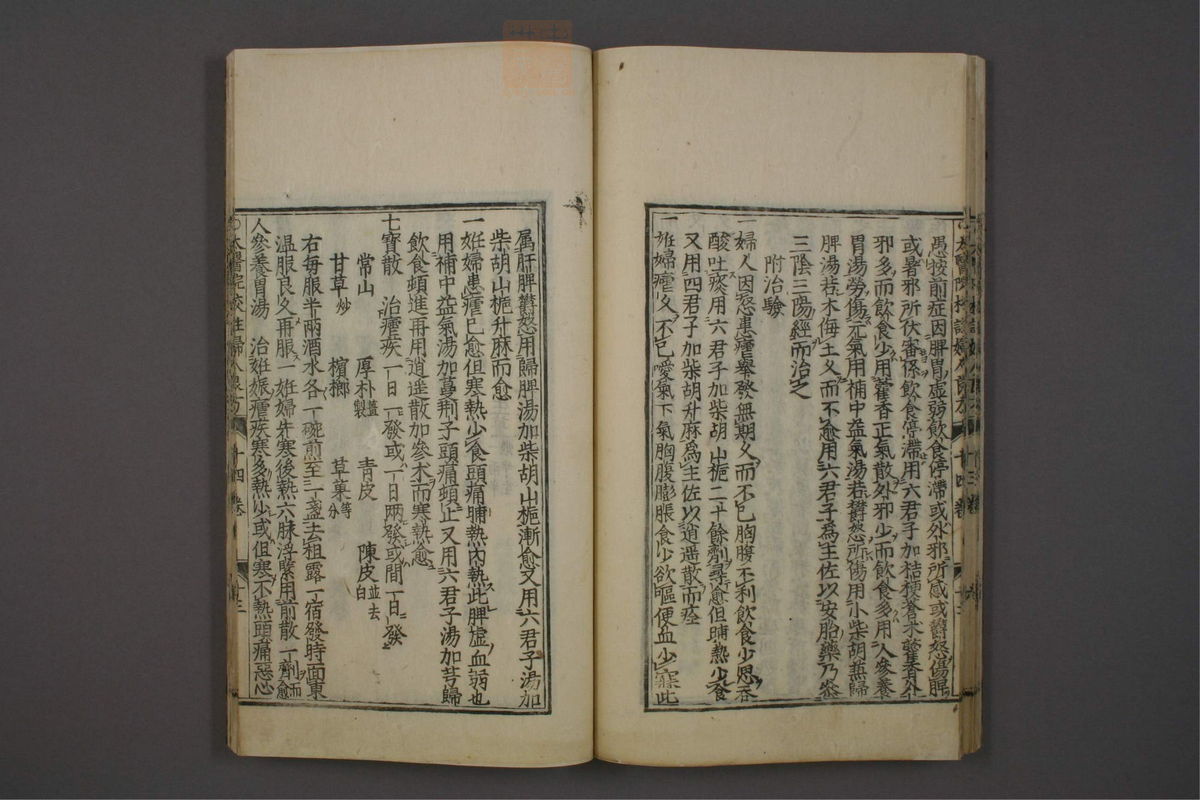 愚按前症因脾胃虚弱飲食停滯或外邪所感或欝怒傷脾
或暑邪所伏審係飲食停滯用六君子加桔梗蒼朮藿香外
邪多而飲食少用藿香正氣散外邪少而飲食多用人參養
胃湯勞傷元氣用補中益氣湯若欝怒所傷用小柴胡兼歸
脾湯若木侮土久而不愈用六君子爲主佐以安胎藥乃參
三陰三陽經而治之
附治驗
一婦人因怒患瘧舉發無期久而不已胸腹不利飲食少思吞
酸吐痰用六君子加柴胡山梔二十餘劑尋愈但晡熱少食
又用四君子加柴胡升麻爲主佐以逍遥散而痊
一妊婦瘧久不已噯氣下氣胸腹膨脹食少欲嘔便血少寐此
属肝脾欝怒用歸脾湯加柴胡山梔漸愈又用六君子湯加
柴胡山梔升麻而愈
一妊婦患瘧已愈但寒熱少食頭痛晡熱內熱此脾虚血弱也
用補中益氣湯加蔓荊子頭痛頓止又用六君子湯加芎歸
飲食頓進再用逍遥散加參朮而寒熱愈
七寶散 治瘧疾一日一發或一日兩發或間一日一發
常山 厚朴薑製 青皮 陳皮並去白
甘草炒 檳榔 草菓等分
右每服半兩酒水各一碗煎至一盞去粗露一宿發時面東
温服良久再服一妊婦先寒後熱六脉浮緊用前散一劑而愈
人參養胃湯 治妊娠瘧疾寒多熱少或但寒不熱頭痛惡心
太醫院校註婦人良方 十四卷 十三